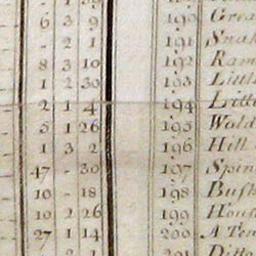 6 3 9 190 Grea
- 2 1 191 Snak
8 3 10 192 Ram
1 2 30 193 Little
2 1 4 194 Litt
5 1 26 195 Wold
1 3 2 196 Hill
47 - 30 197 Spin
10 - 18 198 Bush
10 2 26 199 Hous
27 1 14 200 A Ten
2 1 201 Ditto